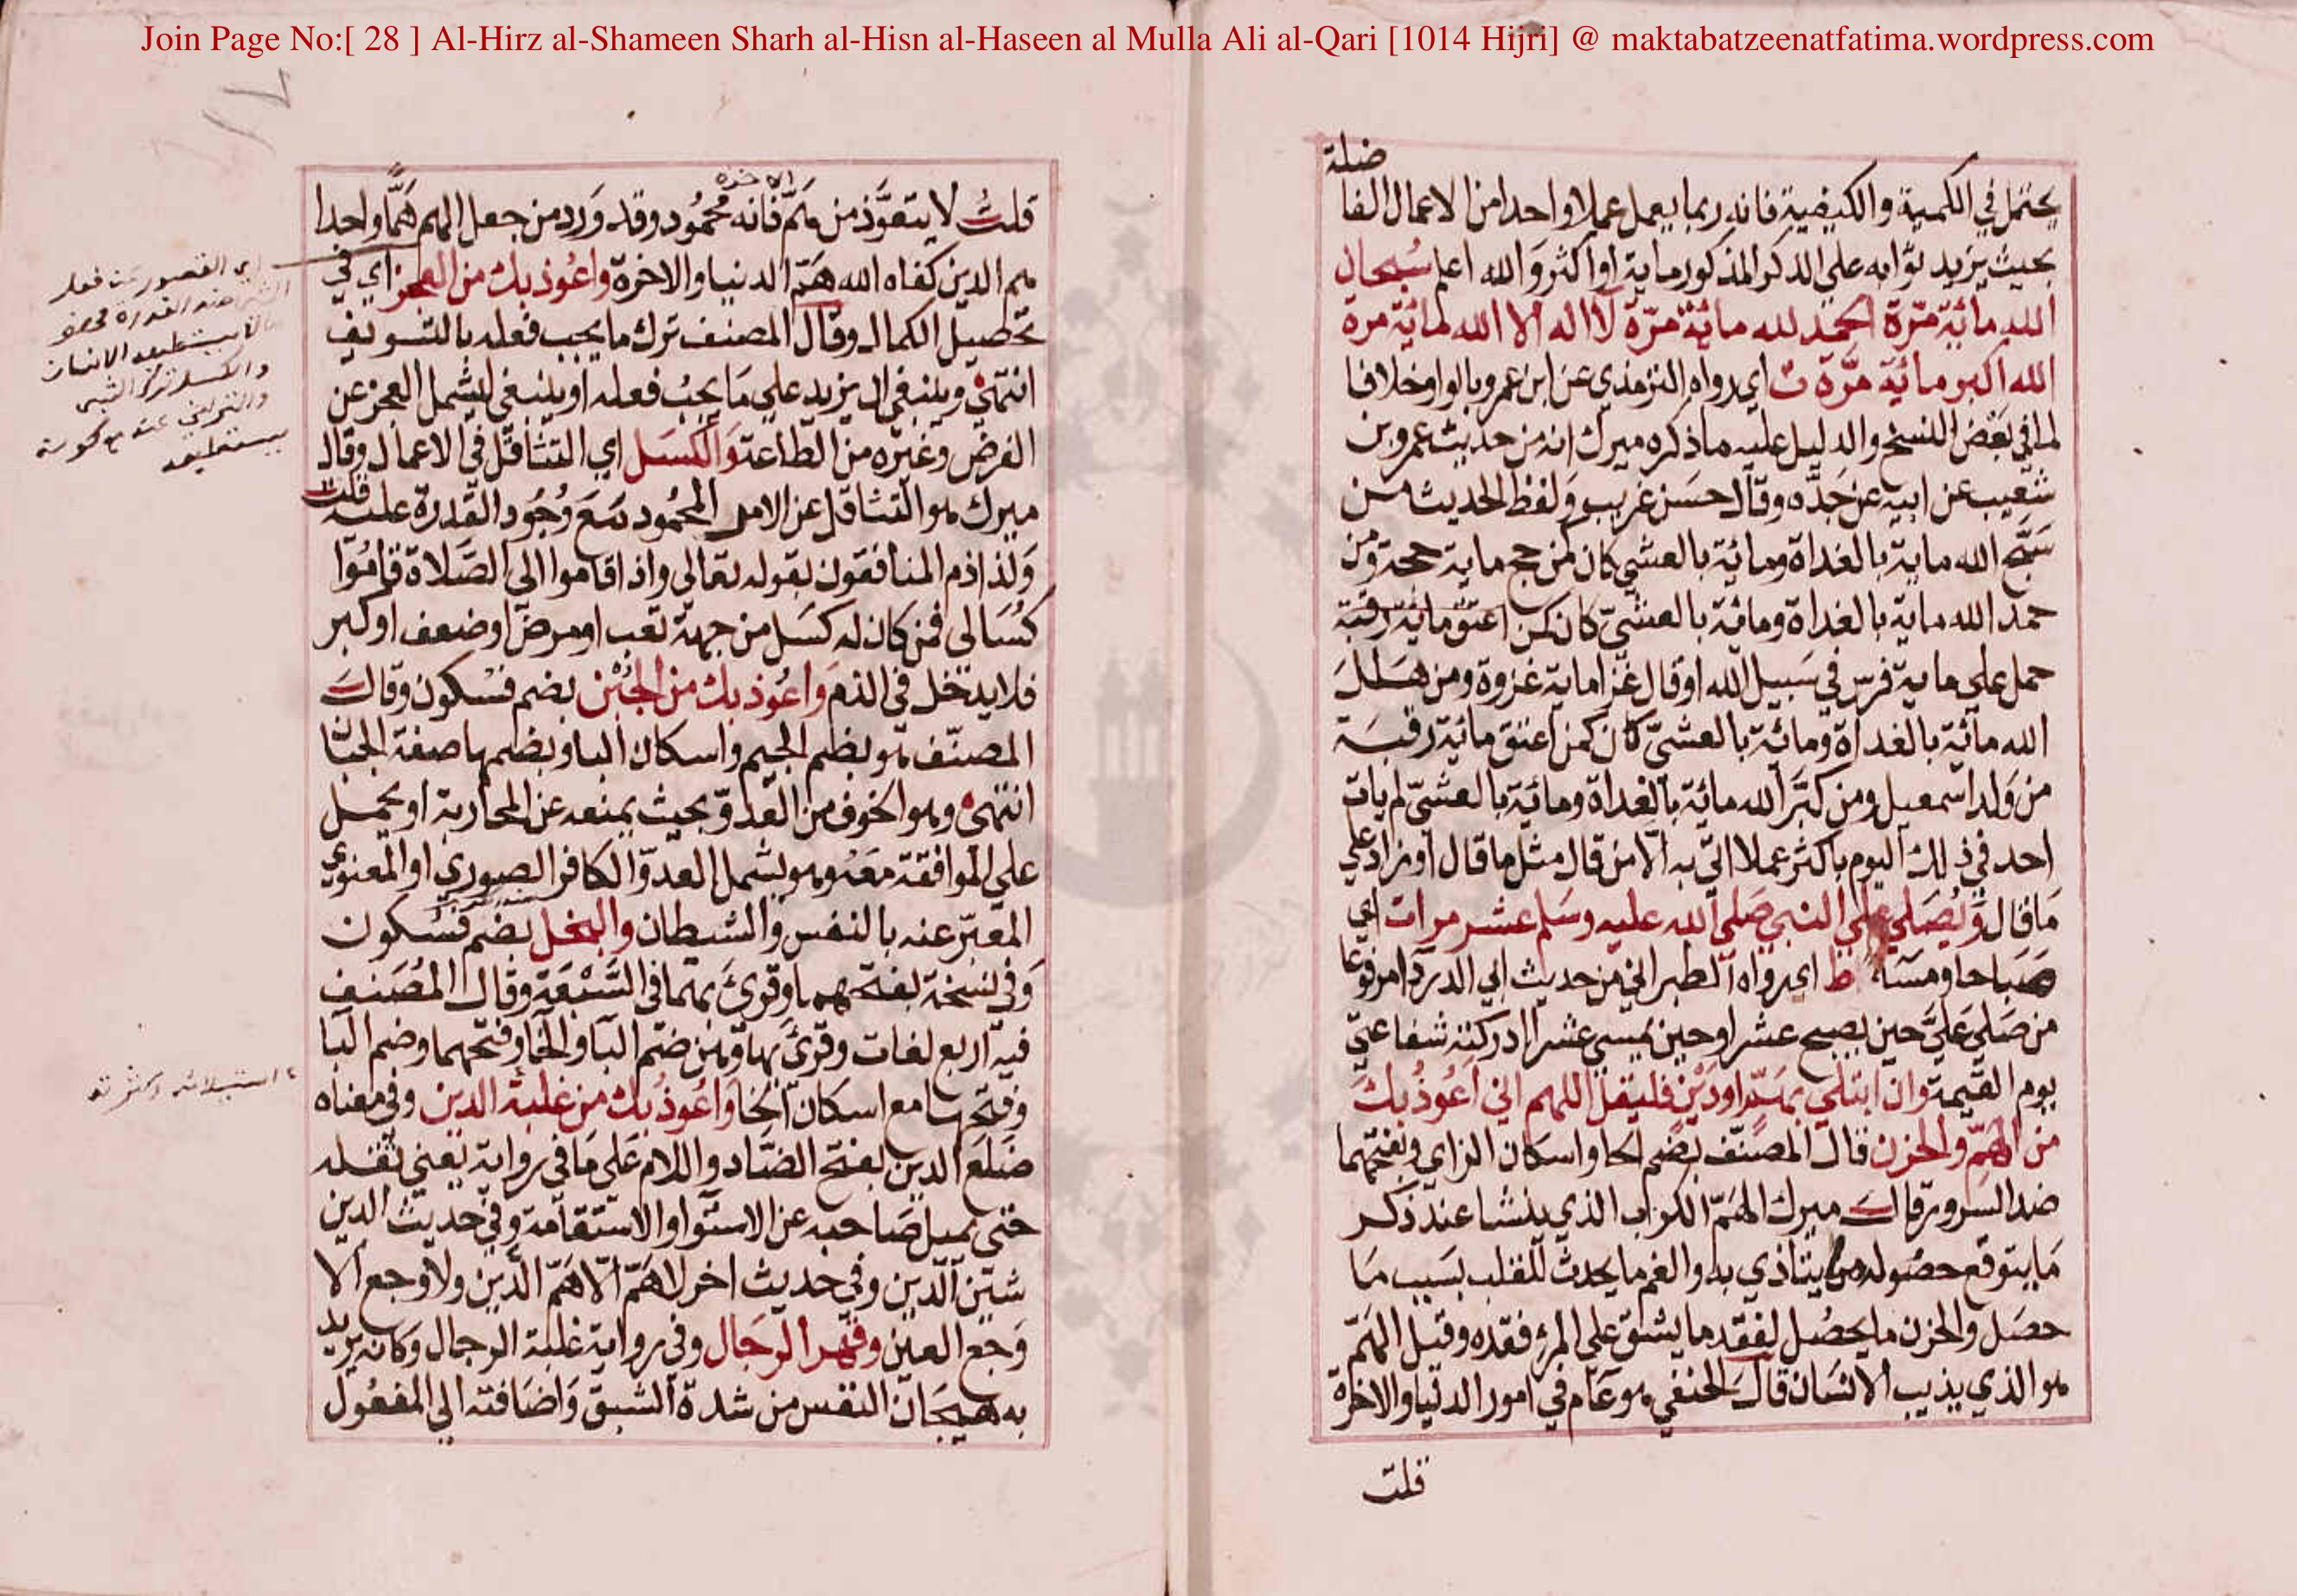 Join Page No:[ 28 ] Al-Hirz al-Shameen Sharh al-Hisn al-Haseen al Mulla Ali al-Qari [1014 Hijri] @ maktabatzeenatfatima.wordpress.com
ضلة
يحتمل في الكمية والكيفية فانه ربما يعمل عملا واحدا من الاعمال الفا
بحيث يزيد ثوابه علي الذكر المذكور ماية او اكثر والله اعلم سُبحان
الله مائة مرّة الحمد لله مائة مرّة لا اله الا الله مائة مرة
الله اكبر مائة مرَّة ت اي رواه الترمذي عن ابن عمرو بالواو خلافا
لما في بعض النسخ والدليل عليه ما ذكره ميرك انه من حديث عمرو بن
شعيب عن ابيه عن جدّه وقال حسن غريب ولفظ الحديث من
سبّح الله ماية بالغداة ومائة بالعشي كان كمن حج ماية حجة ومن
حمد الله ماية بالغداة ومائة بالعشيّ كان كمن اعتق ماية رقبة
حمل علي ماية فرس في سبيل الله او قال غزا ماية غزوة ومن هلل
الله مائة بالغداة ومائة بالعشيّ كان كمن اعتق مائة رقبة
من ولد اسمعيل ومن كبّر الله مائة بالغداة ومائة بالعشيّ لم يات
احد في ذلك اليوم باكثر عملا اتي به الّا من قال مثل ما قال او زاد علي
ما قال ويُصلي علي النبي صلي الله عليه وسلم عشر مرات اي
صباحا ومساء ط اي رواه الطبراني من حديث ابي الدرداء مرفوعا
من صلي عليّ حين يصبح عشرا وحين يمسي عشرا ادركته شفاعتي
يوم القيمة وان ابتلي بهمّ او دَيْن فليقل اللهم اني اعُوذ بك
من الهمّ والحزن قال المصنّف بضم الحا واسكان الزاي وبفتحهما
ضد السرور قال ميرك الهمّ الكرب الذي ينشا عند ذكر
ما يتوقع حصوله مما يتاذي به والغم ما يحدث للقلب بسبب ما
حصل والحزن ما يحصُل لفقد ما يشق علي المرء فقده وقيل الهمّ
هو الذي يذيب الانسان قال الحنفي هو عام في امور الدنيا والاخرة
قلت
الاخرة
قلتُ لا يتعوّذ من همّ فانه محمُود وقد وَرد من جعل الهم همًّا واحدا
هم الدين كفاه الله همّ الدنيا والاخرة واعُوذ بك من العجز اي في
تحصيل الكمال وقال المصنف ترك ما يجب فعله بالتسويف
انتهي وينبغي ان يزيد علي ما يجبُ فعله او ينبغي ليشمل العجز عن
الفرض وغيره من الطاعة والكسل اي التثاقل في الاعمال وقال
ميرك هو التثاقل عن الامر المحمُود مع وُجُود القدرة عليه قلت
وَلذا ذم المنافقون بقوله تعالي واذا قاموا الي الصّلاة قامُوا
كُسَالي فمن كان له كسل من جهة تعب او مرض او ضعف او كبر
فلا يدخل في الذم واعُوذ بك من الجُبْن بضم فسكون وقال
المصنّف هو بضم الجيم واسكان البا وبضمها صفة الجبا
انتهي وهو الخوف من العدوّ بحيث يمنعه عن المحاربة او يحمل
علي الموافقة معه وهو يشمل العدوّ الكافر الصوري او المعنوي
المعبّر عنه بالنفس والشيطان والبخل بضم فسُكون
وَفي نسخة بفتحهما وقرئ بهما في السّبْعة وقال المُصَنف
فيه اربع لغات وقرئ بها وهن ضم البا والخا وفتحهما وضم البا
وفتحها مع اسكان الخا واعُوذُ بك من غلبة الدين وفي معناه
ضلع الدين بفتح الضاد واللام علي ما في رواية يعني ثقله
حتي يميل صاحبه عن الاستوا والاستقامة وفي حديث الدين
شين الدين وفي حديث اخر لا همّ الّا همّ الدين ولا وجع الا
وَجع العين وقهر الرجال وفي رواية غلبة الرجال وكانه يريد
به هيجان النفس من شدة الشبق واضافته الي المفعُول
اي القصور عن فعل
الانسان
والكسل ترك الشي
والتراخي عنه مع كونه
يستطيعه
استيلائه وكثرته